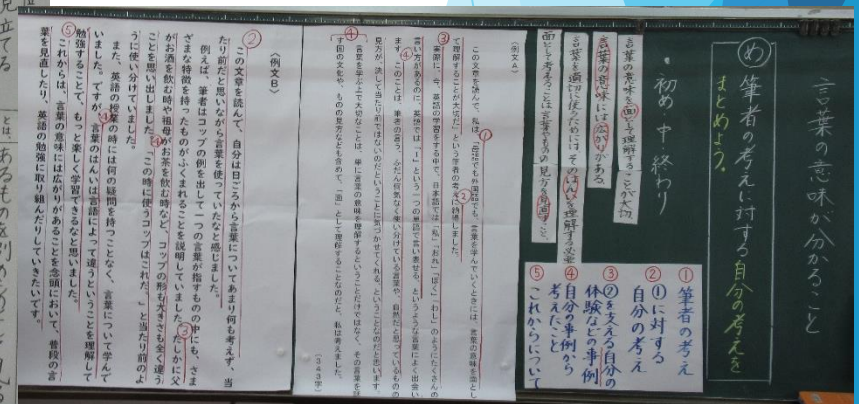 言葉の意味が分かること
め 筆者の考えに対する自分の考えを
まとめよう。
・初め・中・終わり
言葉の意味を面として理解することが大切。
言葉の意味には広がりがある。
言葉を適切に使うためには、そのはんいを理解する必要
面として考えることは、言葉やものの見方を見直すこと。
① 筆者の考え
② ①に対する
自分の考え
③ ②を支える自分の
体験などの事例
④ 自分の事例から
考えたこと
⑤ これからについて
〈例文A〉
この文章を読んで、私は、「母語でも外国語でも、言葉を学んでいくときには、言葉の意味を面とし
て理解することが大切だ」という筆者の考えに納得しました。
実際に、今、英語の学習をする中で、日本語では「私」「おれ」「ぼく」「わし」のようにたくさんの
言い方があるのに、英語では「I」という一つの単語で言い表せる、というような言葉によく出会い
ます。このことは、筆者の言う、ふだん何気なく使い分けている言葉や、自然だと思っているものの
見方が、決して当たり前ではないのだということに気づかせてくれる、ということなのだと思います。
言葉を学ぶ上で大切なことは、単に言葉の意味を理解するということだけではなく、その言葉を話
す国の文化や、ものの見方なども含めて、「面」として理解することなのだと、私は考えました。
(343字)
〈例文B〉
この文章を読んで、自分は日ごろから言葉についてあまり何も考えず、当
たり前だと思いながら言葉を使っていたなと感じました。
例えば、筆者はコップの例を出して一つの言葉が指すものの中にも、さま
ざまな特徴を持ったものがふくまれることを説明していました。たしかに父
がお酒を飲む時や祖母がお茶を飲む時など、コップの形も大きさも全く違う
ことを思い出しました。「この時に使うコップはこれだ。」と当たり前のよ
うに使い分けていました。
また、英語の授業の時には何の疑問を持つことなく、言葉について学んで
いました。ですが、言葉のはんいは言語によって違うということを理解して
勉強することで、もっと楽しく学習できるなと思いました。
これからは、言葉の意味には広がりがあることを念頭において、普段の言
葉を見直したり、英語の勉強に取り組んだりしていきたいです。
見立てる
とは、あるものを別の